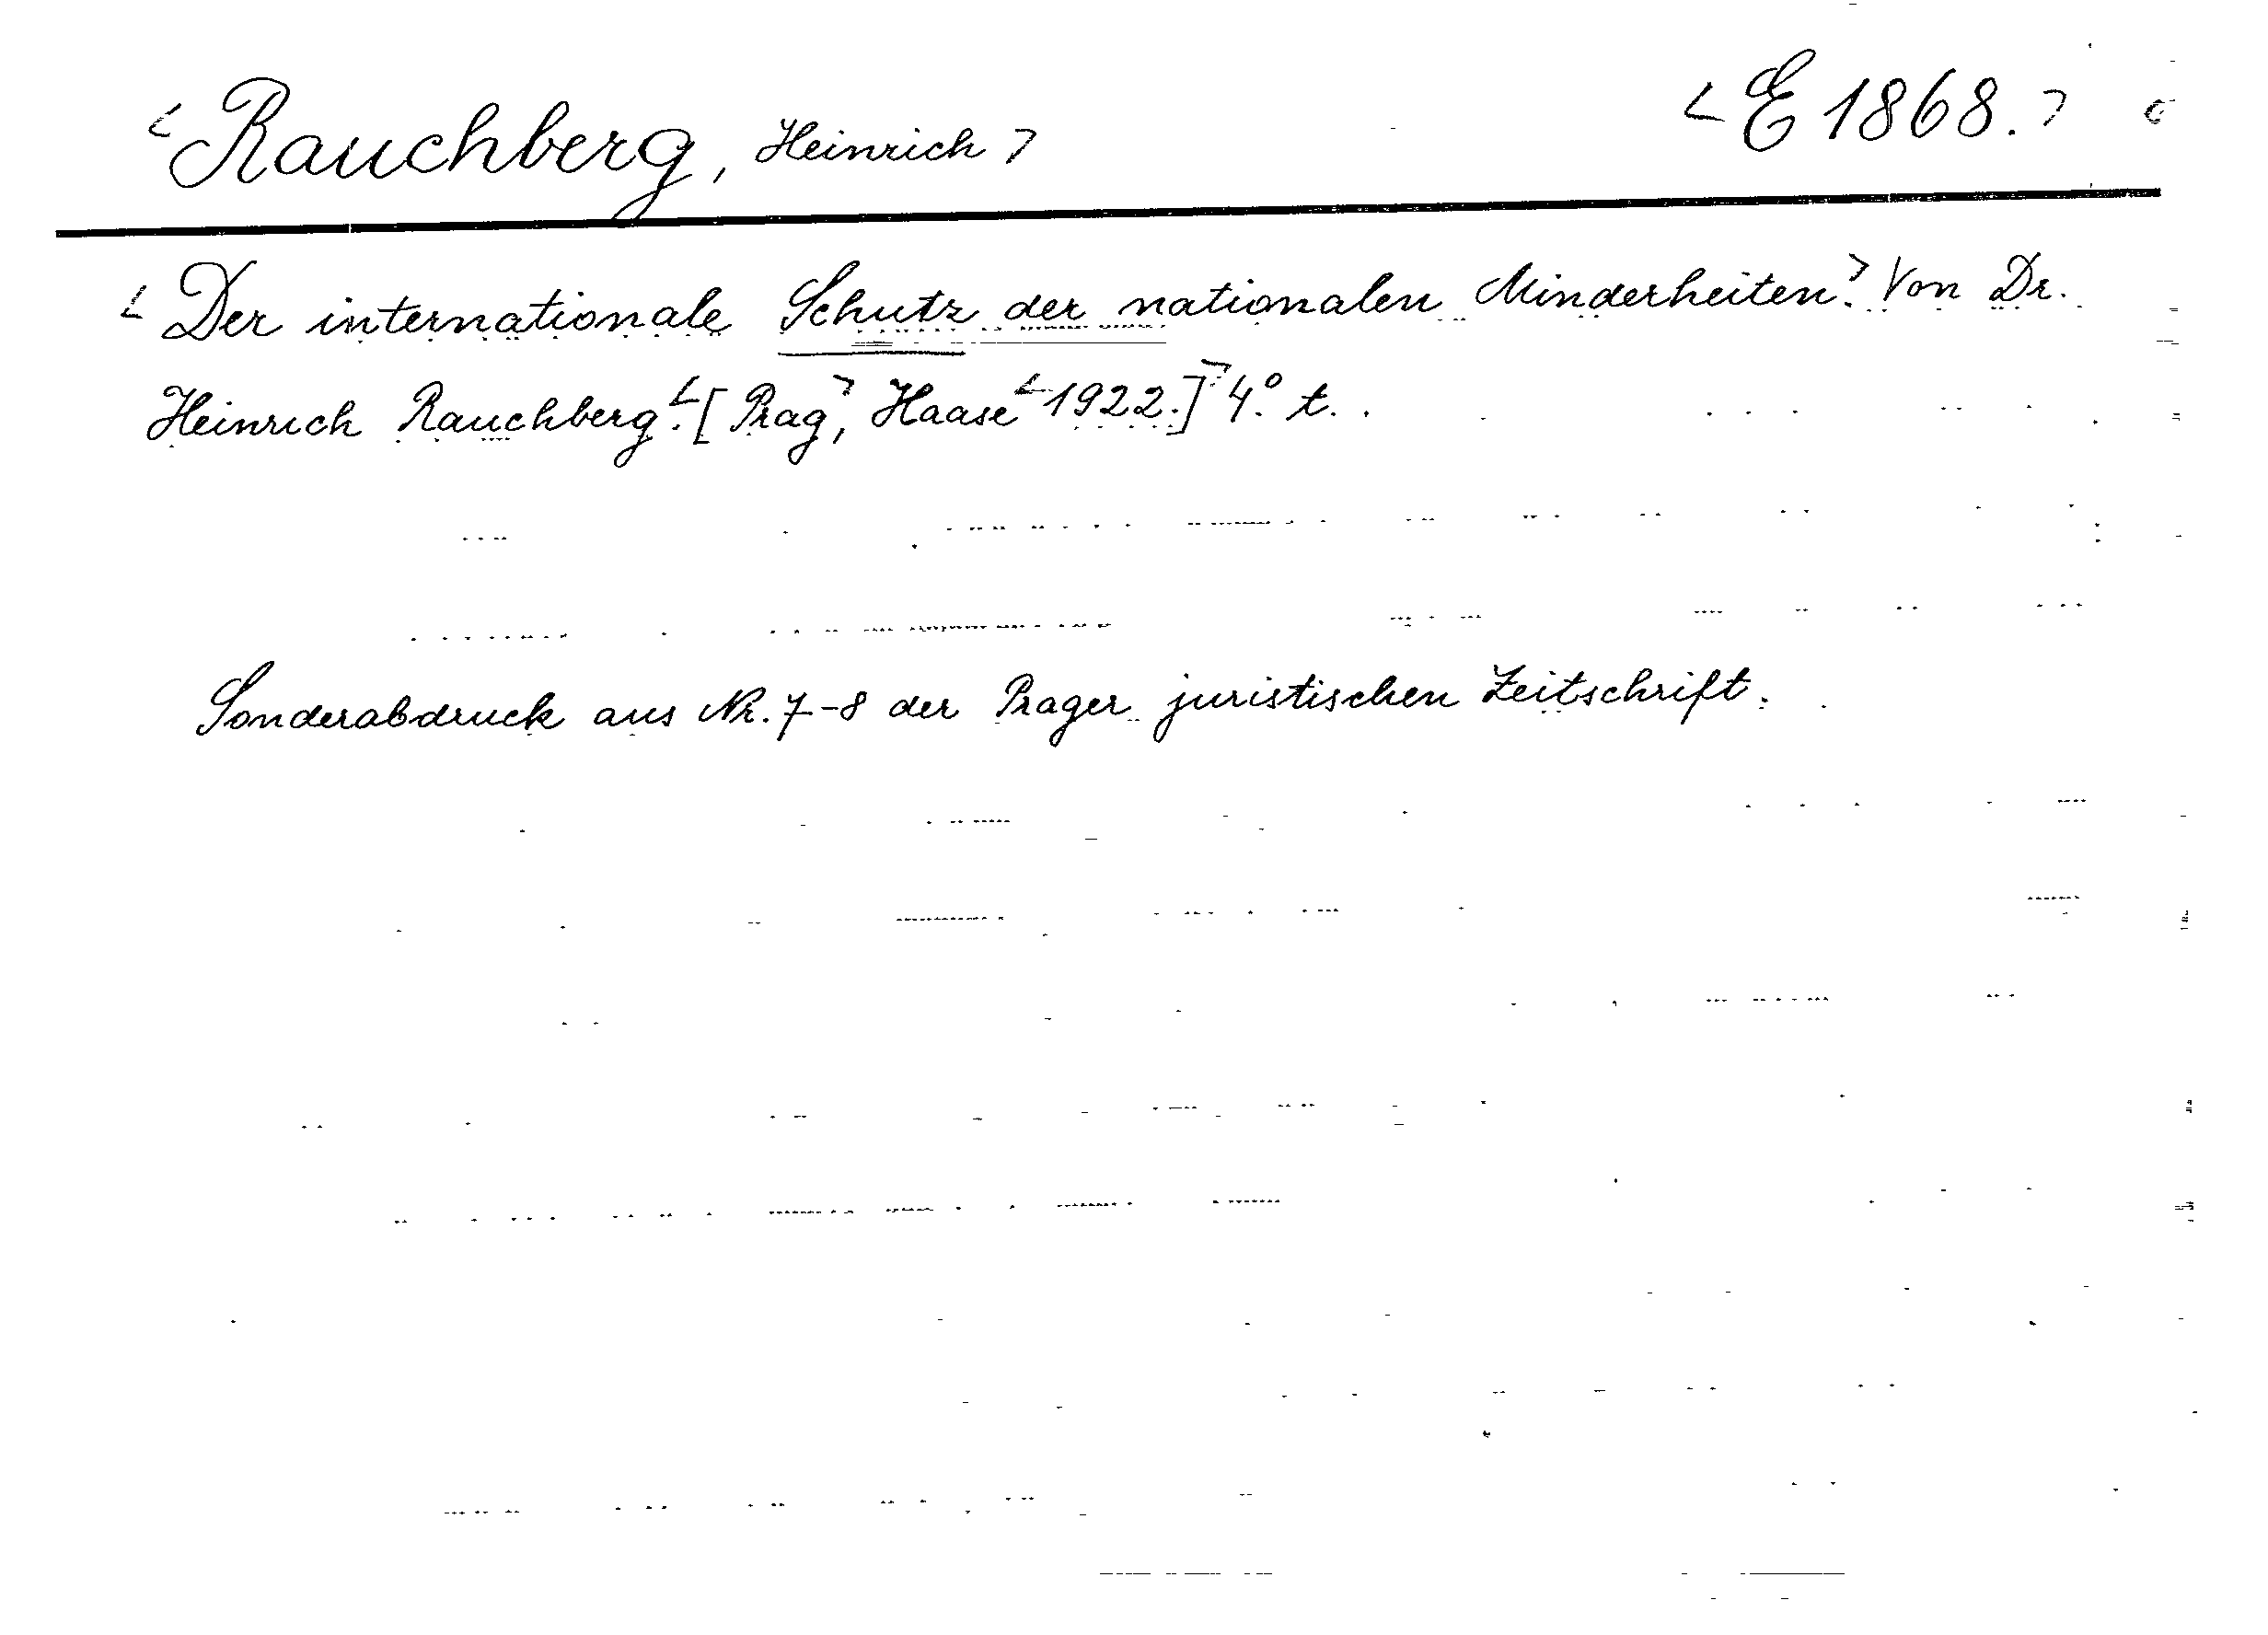 <Rauchberg, Heinrich> <E 1868.>
<Der internationale Schutz der nationalen Minderheiten>. Von Dr.
Heinrich Rauchberg. <[Prag>, Haase <1922.]> 4.° t.
Sonderabdruck aus Nr. 7-8 der Prager juristischen Zeitschrift.